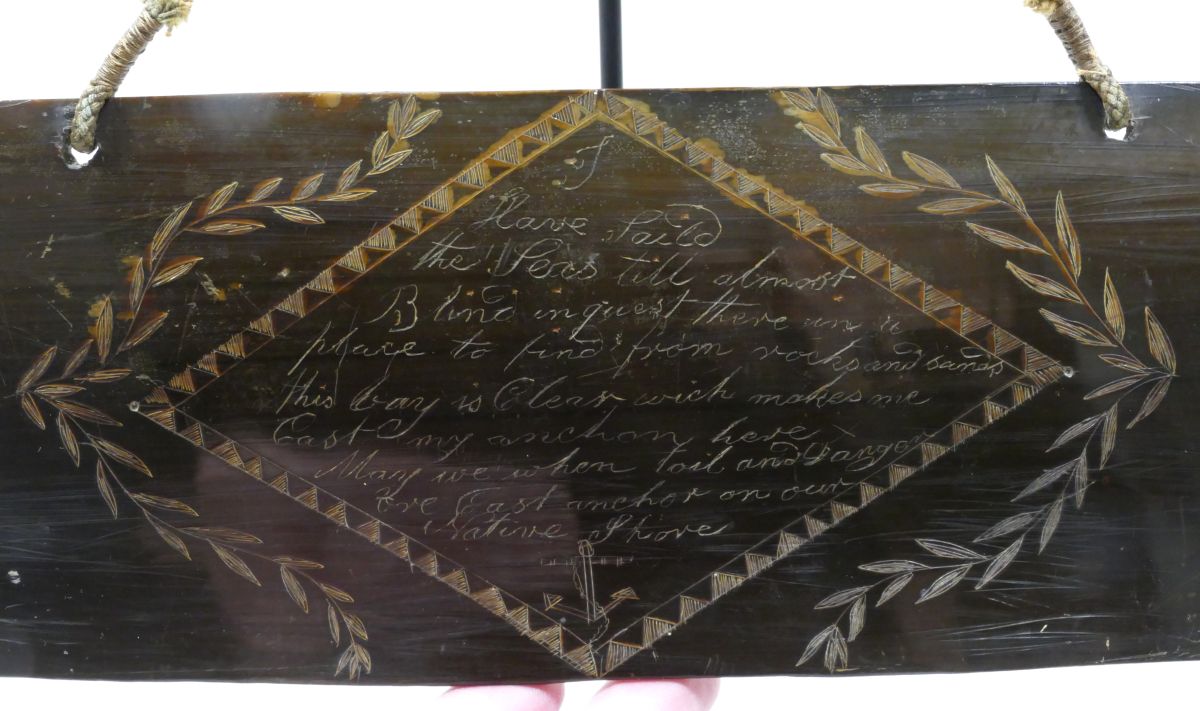 I
Have Saild
the Seas till almost
Blind in quest there in a
place to find from rocks and sands
this bay is Clear wich makes me
Cast my anchor here
May we when toil and Danger
Ore Cast anchor on our
Native Shore